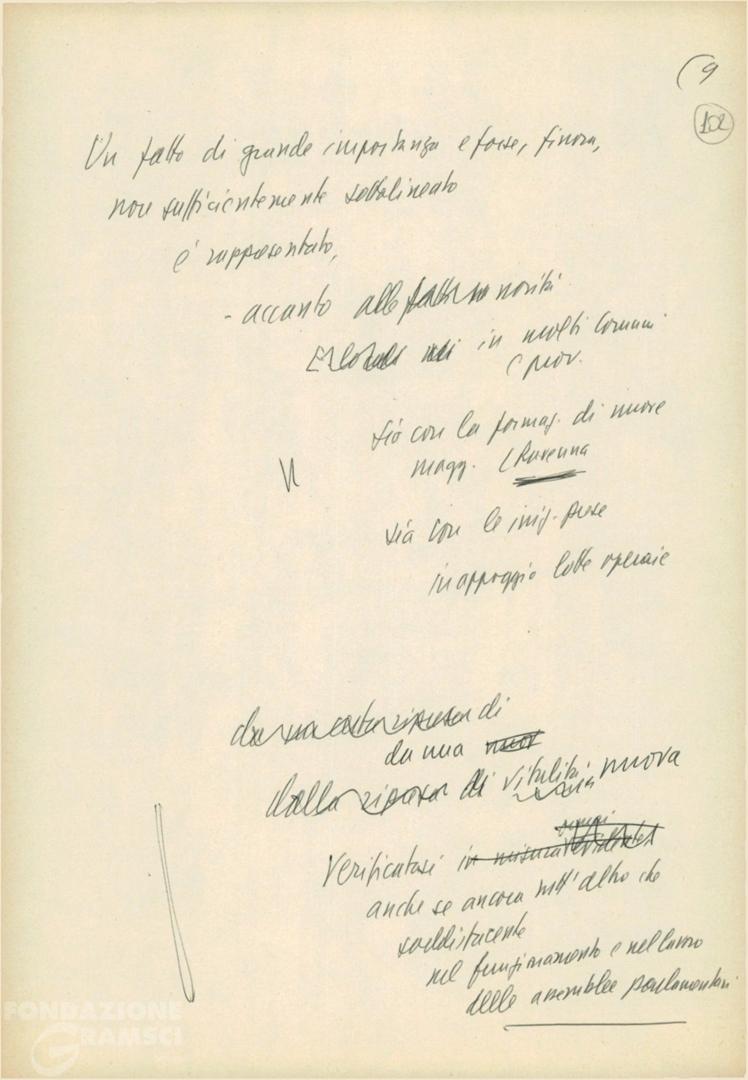 (9
102
Un fatto di grande importanza e forse, finora,
non sufficientemente sottolineato
è rappresentato,
- accanto alle novità
in molti Comuni
e prov.
sia con la formaz. di nuove
magg. (Ravenna
sia con le iniz. prese
in appoggio lotte operaie
da una certa ripresa di
da una
dalla ripresa di vitalità nuova
verificatasi in misura
anche se ancora tutt'altro che
soddisfacente
nel funzionamento e nel lavoro
delle assemblee parlamentari
FONDAZIONE
GRAMSCI